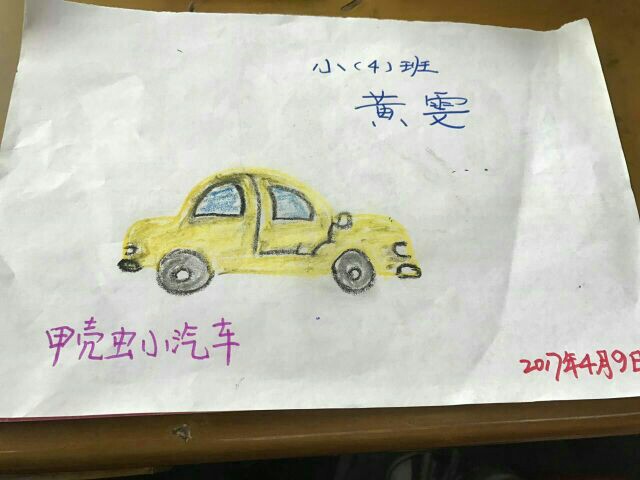 小(4)班
黄雯
甲壳虫小汽车
2017年4月9日